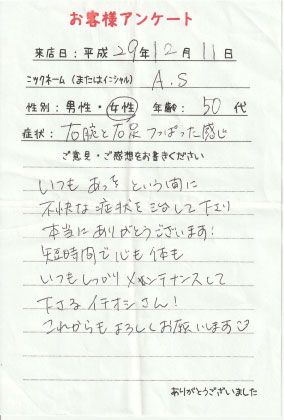 お客様アンケート
来店日：平成 29年 12月 11日
ニックネーム（またはイニシャル） A.S
性別：男性・女性 年齢： 50 代
症状：右腕と右足 つっぱった感じ
ご意見・ご感想をお書きください
いつも あっ という間に
不快な症状を治して下さり
本当にありがとうございます！
短時間で心も体も
いつもしっかりメンテナンスして
下さるイチオシさん！
これからもよろしくお願いします
ありがとうございました